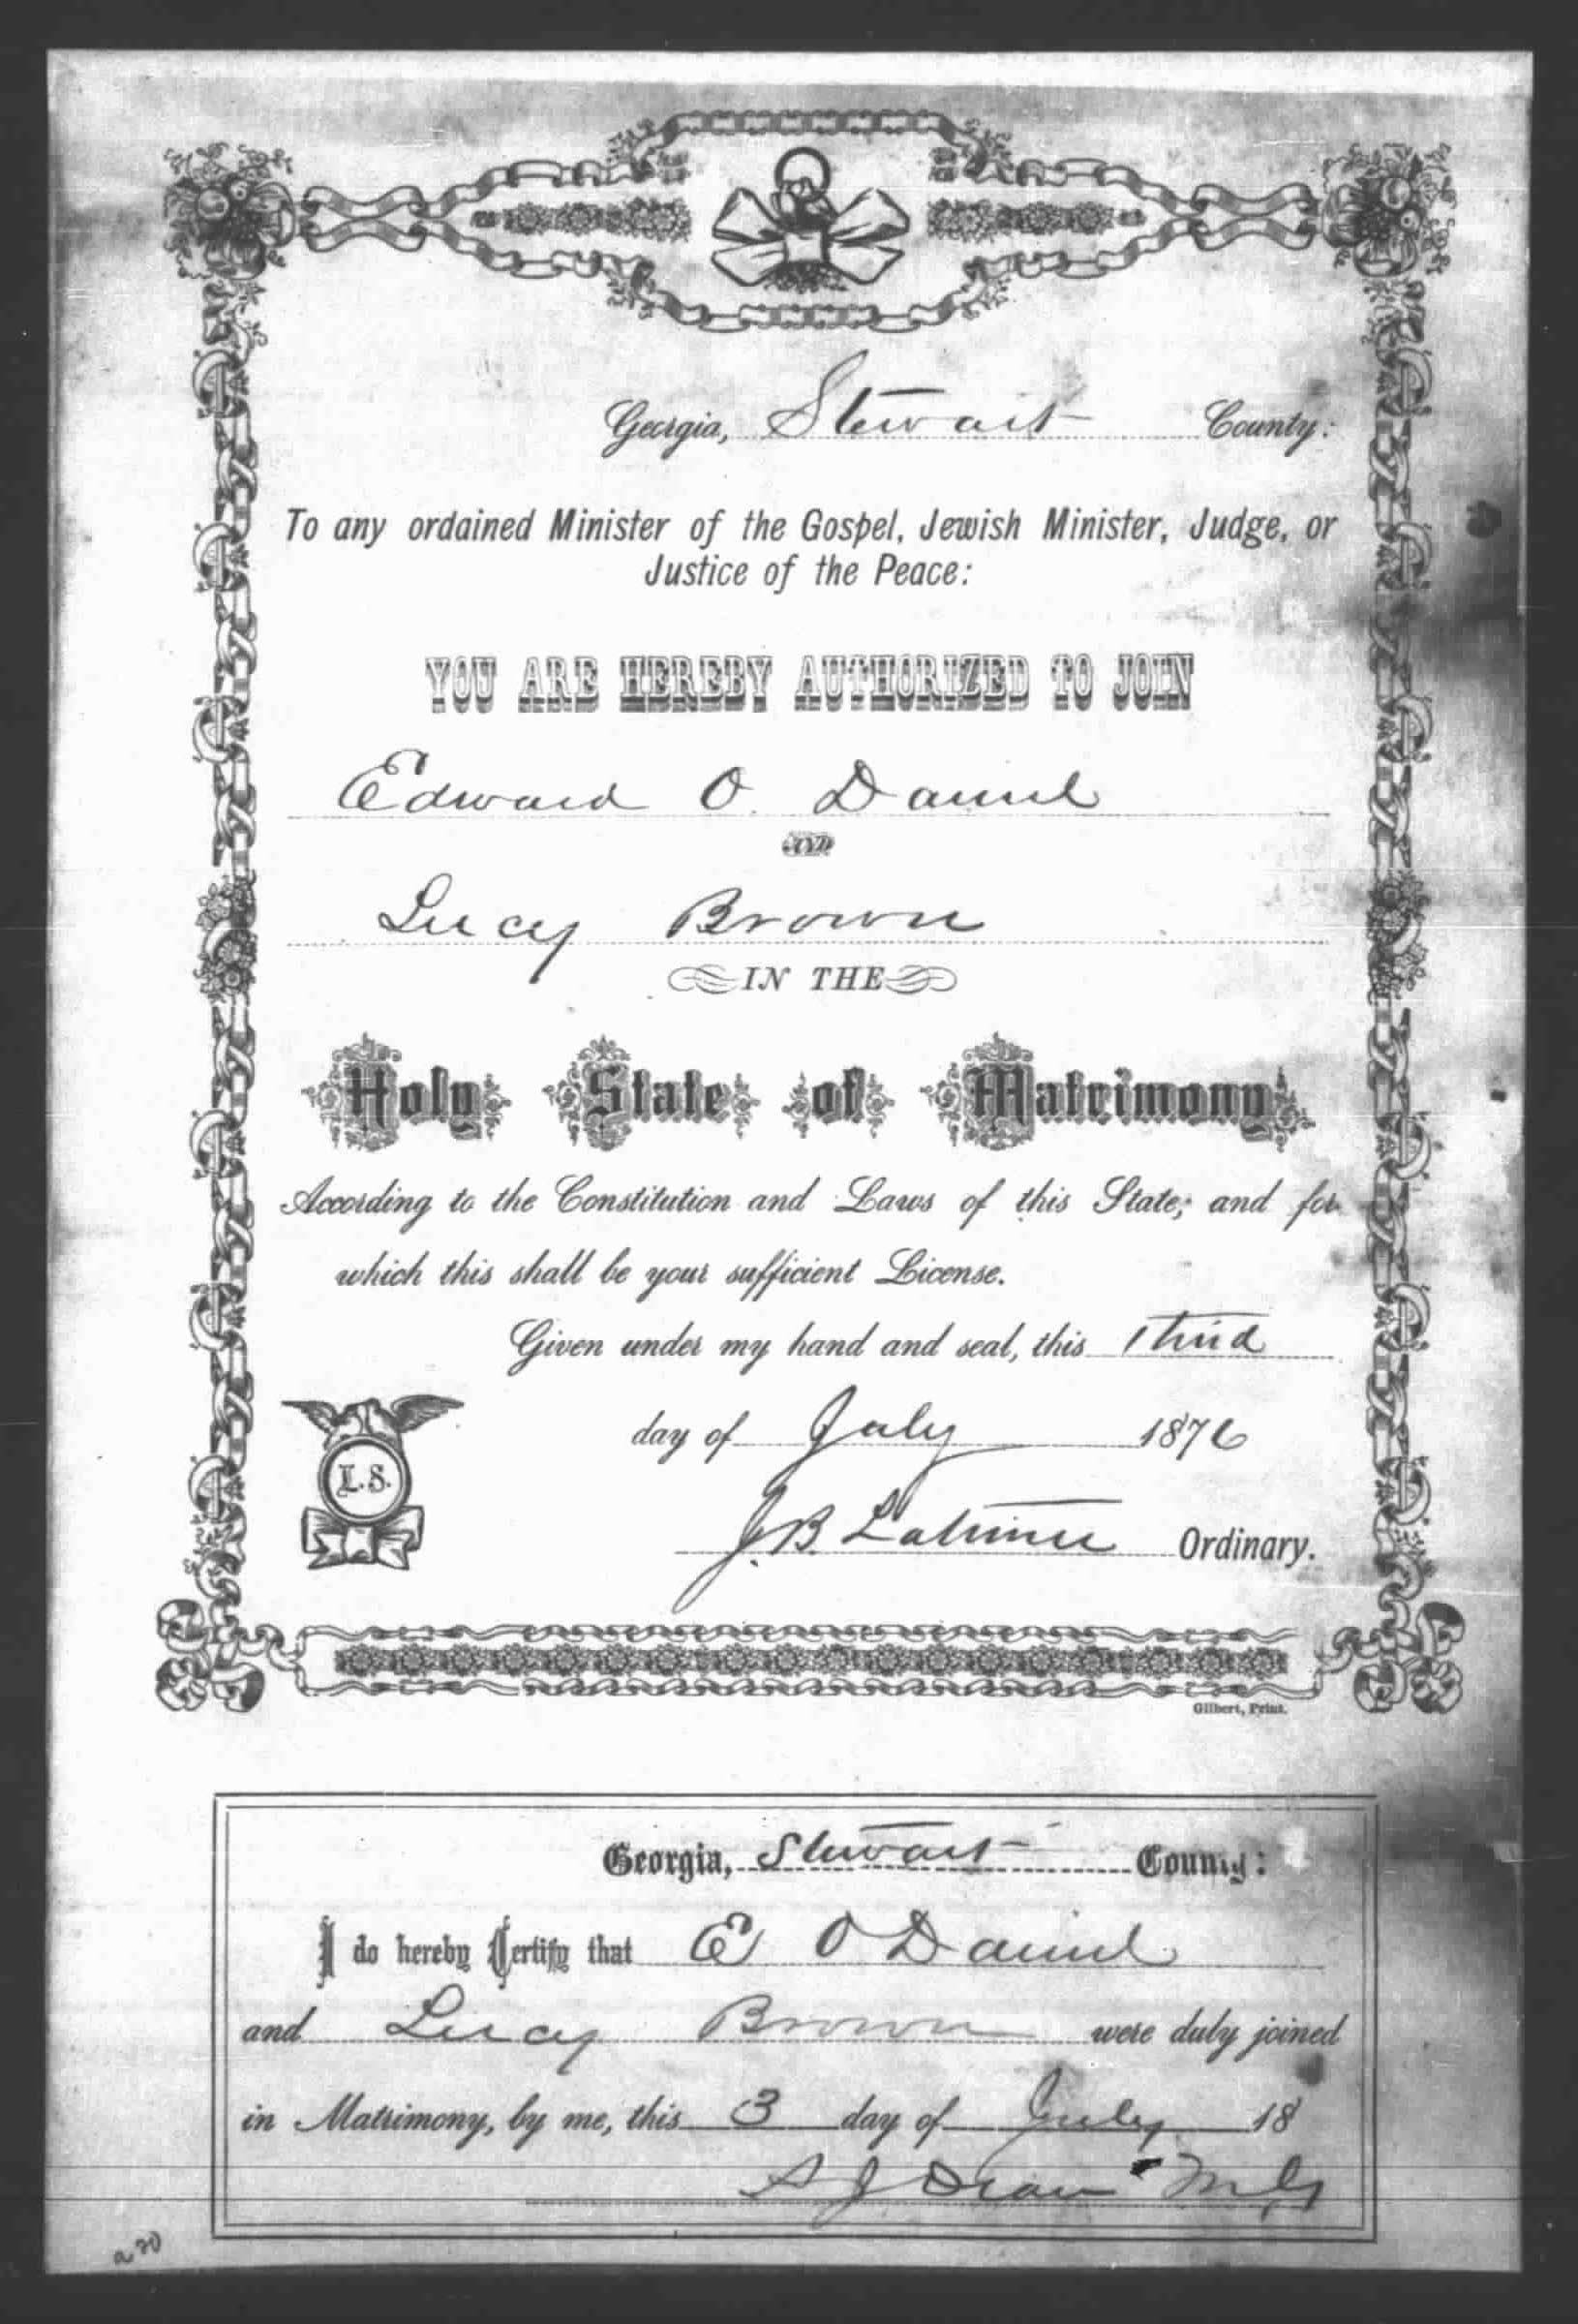 Georgia, Stewart County:
To any ordained Minister of the Gospel, Jewish Minister, Judge, or
Justice of the Peace:
YOU ARE HEREBY AUTHORIZED TO JOIN
Edward O. Daniel
AND
Lucy Brown
IN THE
Holy State of Matrimony
According to the Constitution and Laws of this State; and for
which this shall be your sufficient License.
Given under my hand and seal, this third
day of July 1876
L.S.
J.B. Latimer Ordinary.
Gilbert, Print.
Georgia, Stewart County:
I do hereby Certify that E O Daniel
and Lucy Brown were duly joined
in Matrimony, by me, this 3 day of July 18
J M G